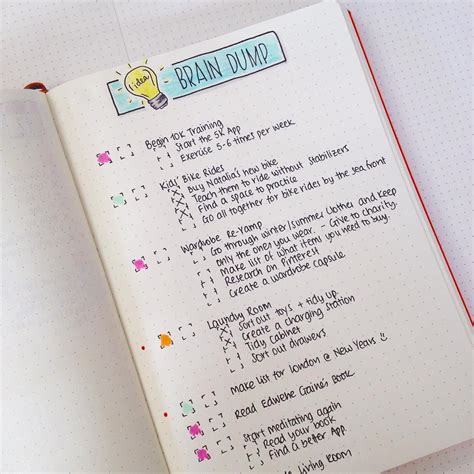 idea
BRAIN DUMP
Begin 10K Training
Start the 5K App
Exercise 5-6 times per week
Kids' Bike Rides
Buy Natalia's new bike
Teach them to ride without stabilizers
Find a space to practice
Go all together for bike rides by the sea front
Wardrobe Re-Vamp
Go through winter/summer clothes and keep
only the ones you wear. - Give to charity.
Make list of what items you need to buy.
Research on Pinterest
Create a wardrobe capsule
Laundry Room
Sort out toys + tidy up
Create a charging station
Tidy Cabinet
Sort out drawers
Make list for London @ New Years
Read Book
Start meditating again
Read your book
Find a better App.
Living Room